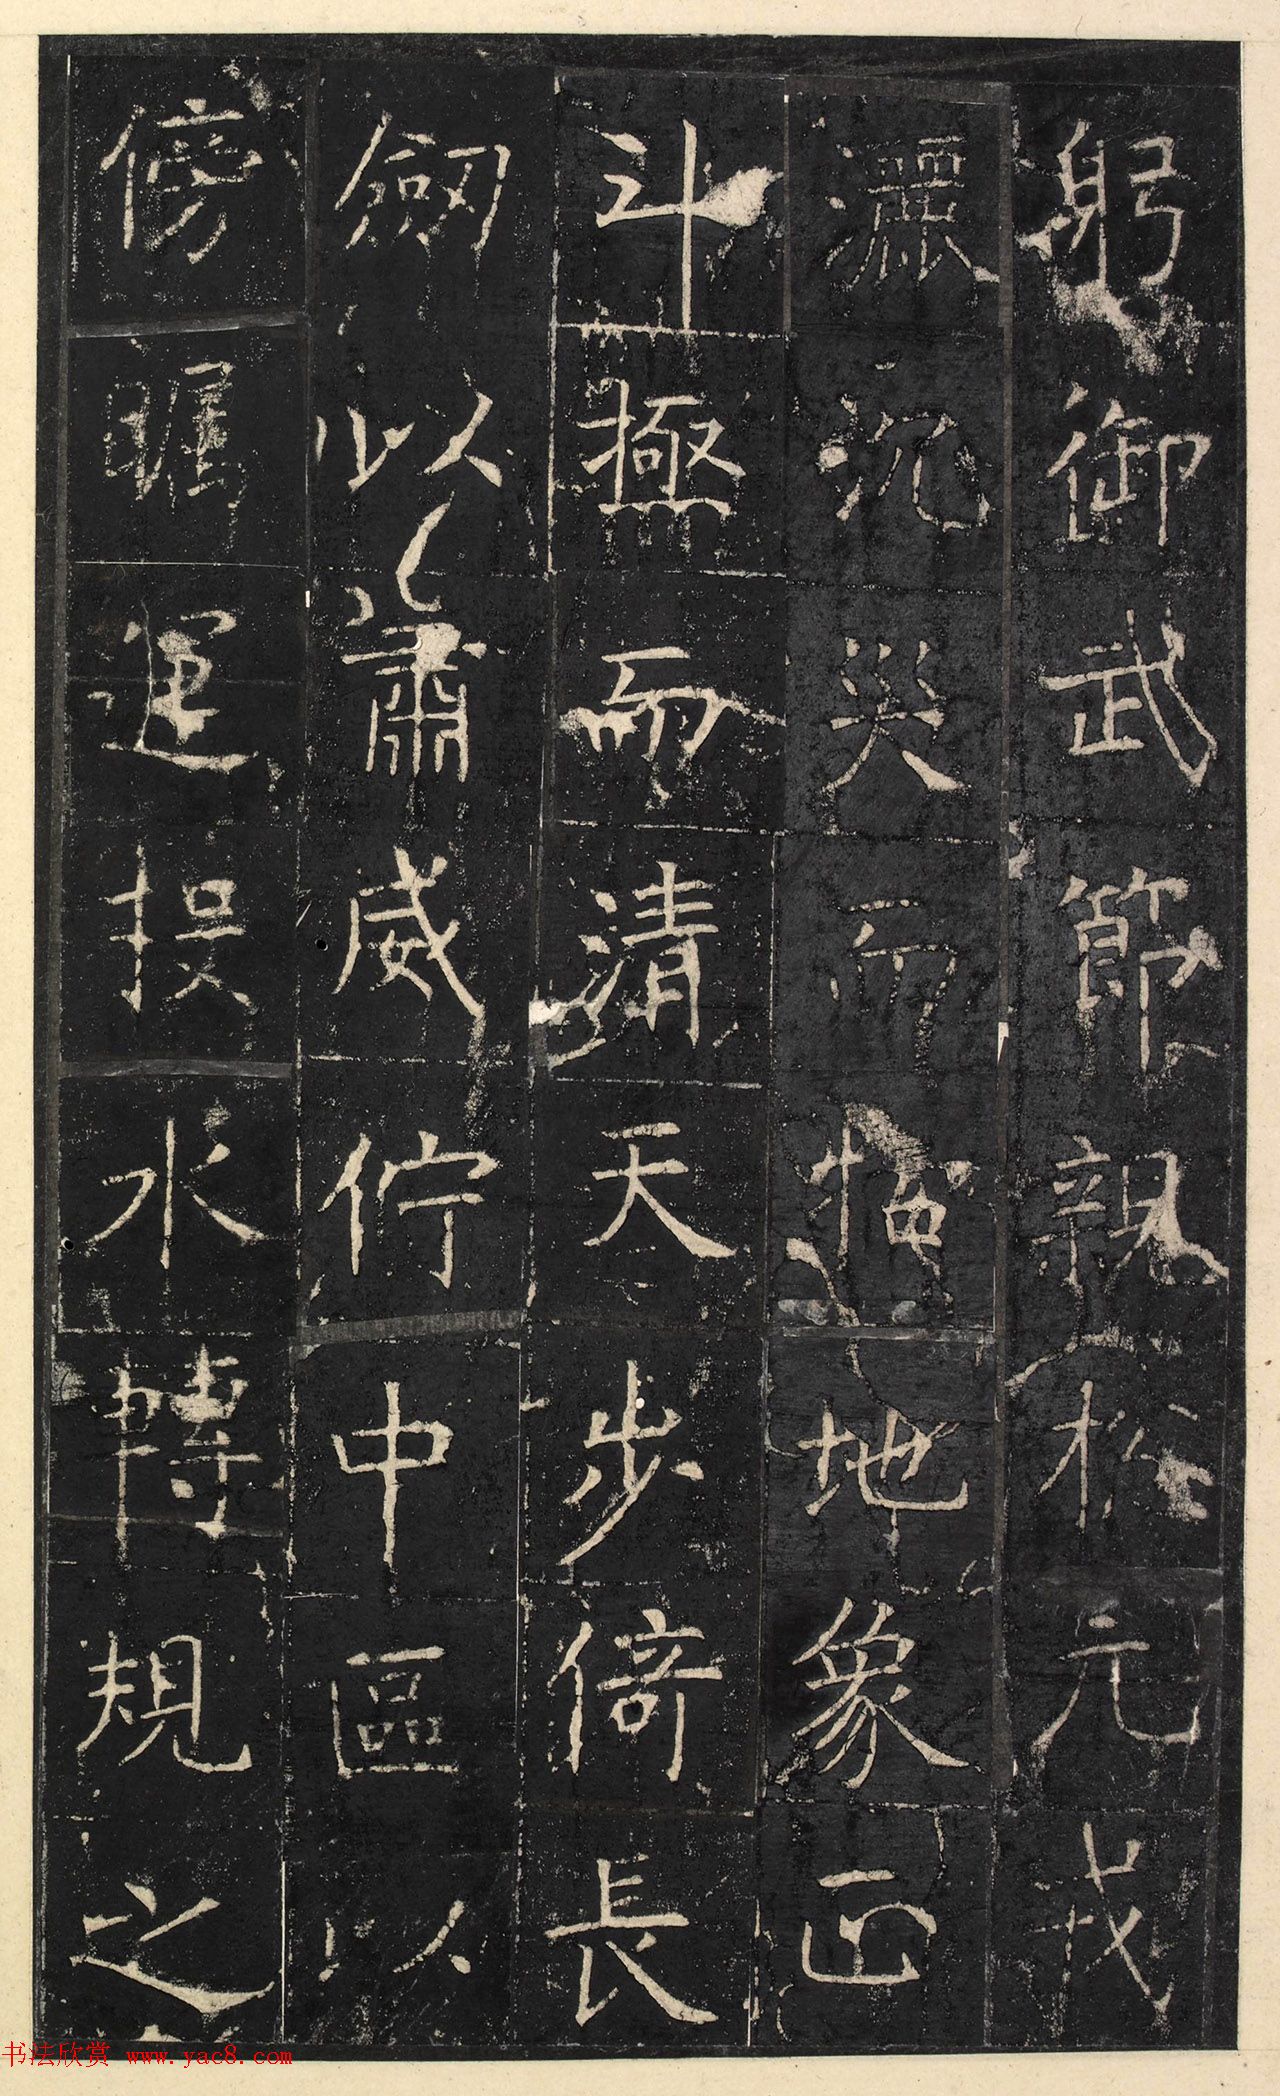 躬御武節親於元戎
灑沉災而㩉地象正
斗極而清天步倚長
劒以肅威佇中區以
傍矚運投水轉規之
书法欣赏 www.yac8.com